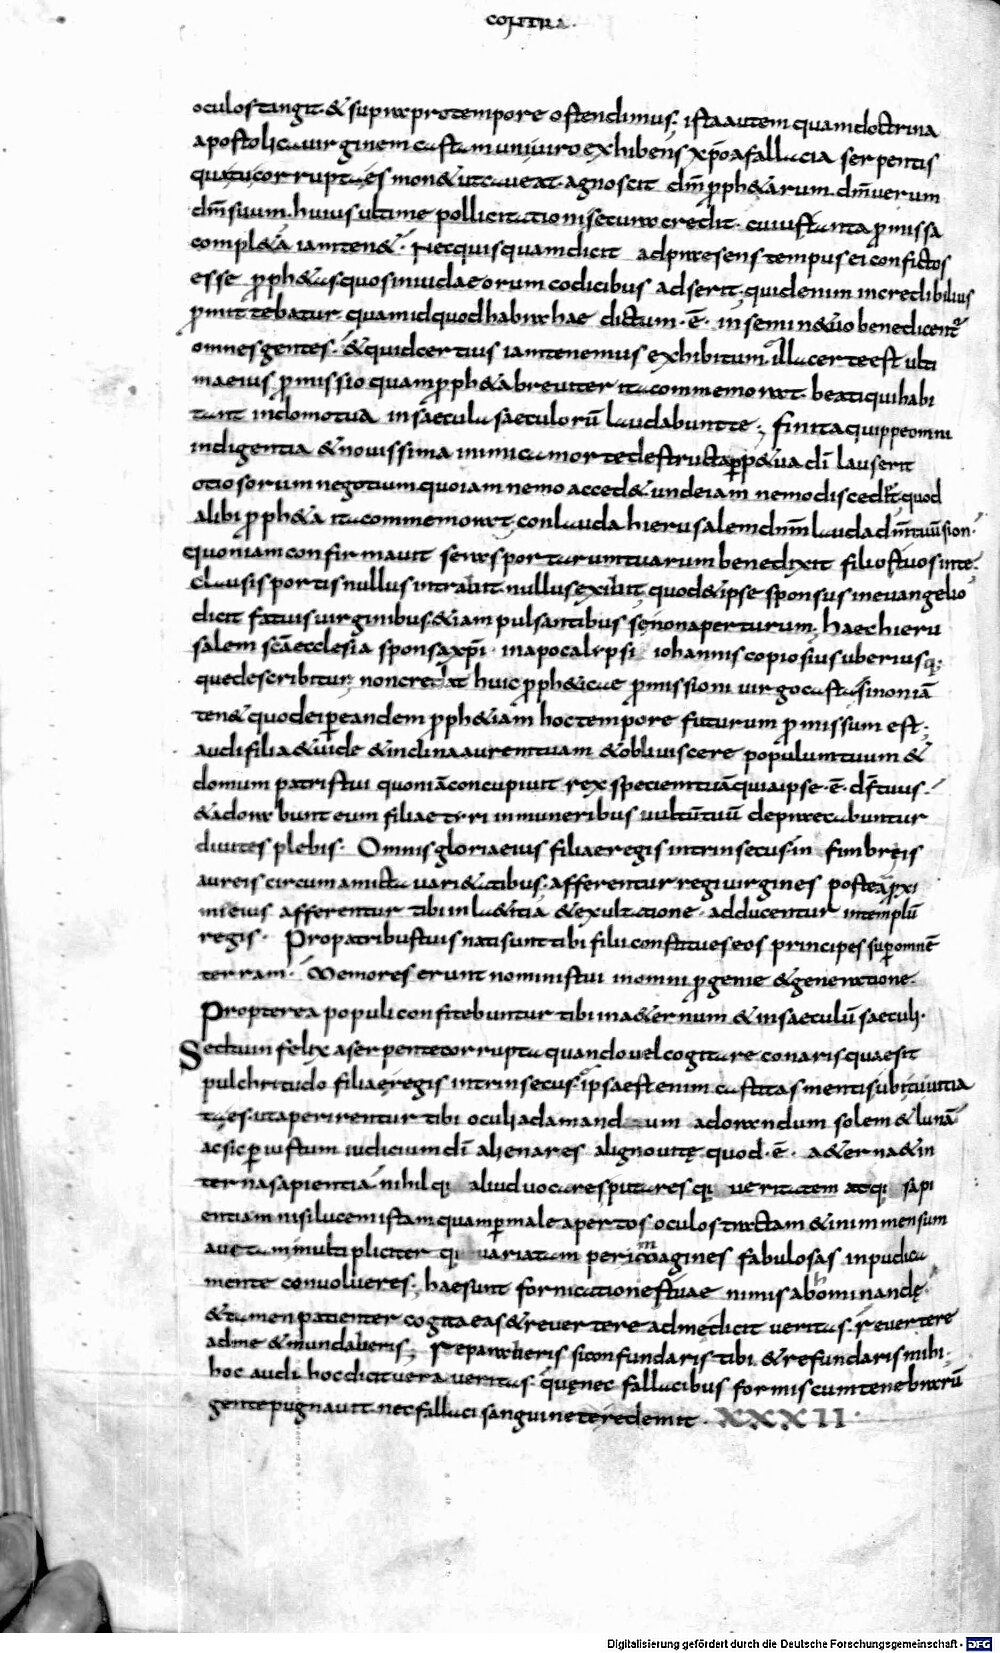 CONTRA
oculos tangit. & supra pro tempore ostendimus; ista autem quam doctrina
apostolica uirginem castam uni uiro exhibens xp̄o a fallacia serpentis
qua tu corrupta es mon& ut caueat. agnoscit dm̄ proph&arum. dm̄ uerum
dm̄ suum. huius ultime pollicitationi secura credit. cuius tanta promissa
compl&a iam ten&. Nec quisquam dicit ad praesens tempus ei confictos
esse proph&as quos in iudaeorum codicibus adserit. quid enim incredibilius
promittebatur quam id quod habrahae dictum .ē. in semine tuo benedicent~
omnes gentes. & quid certius iam tenemus exhibitum. illa certe est ulti
ma eius promissio quam proph&a breuiter ita commemorat. beati qui habi
tant in domo tua in saecula saeculorū laudabunt te; finita quippe omni
indigentia & nouissima inimica morte destructa perp&ua dī laus erit
otiosorum negotium. quo iam nemo acced& unde iam nemo disced&. quod
alibi proph&a ita commemorat. conlauda hierusalem dnm̄ lauda dm̄ tuū sion.
quoniam confirmauit seras portarum tuarum benedixit filios tuos in te.
clausis portis nullus intrabit. nullus exibit. quod & ipse sponsus in euangelio
dicit fatuis uirginibus. &iam pulsantibus se non aperturum. haec hieru
salem scā ecclesia sponsa xp̄i. in apocalypsi iohannis copiosius uberiusq;
que describitur. non credat huic proph&icae promissioni uirgo casta si non iā
ten& quod ei per eandem proph&iam hoc tempore futurum promissum est;
audi filia & uide & inclina aurem tuam & obliuiscere populum tuum &
domum patris tui quoniā concupiuit rex speciem tuā quia ipse .ē. ds̄ tuus.
& adorabunt eum filiae tyri in muneribus uultū tuū deprecabuntur
diuites plebis. Omnis gloria eius filiae regis intrinsecus. in fimbreis
aureis circumamicta uari&atibus. afferentur regi uirgines post ea proxi
mi eius afferentur tibi in l&itia & exultatione. adducentur in templū
regis. Pro patribus tuis nati sunt tibi filii constitues eos principes super omnē
terram. Memores erunt nominis tui in omni progenie & generatione.
Propterea populi confitebuntur tibi in a&ernum & in saeculū saeculi.
Sed tu infelix a serpente corrupta quando uel cogitare conaris quae sit
pulchritudo filiae regis intrinsecus. ipsa est enim castitas mentis ubi tu uitia
ta es. ut aperirentur tibi oculi ad amandum adorandum solem & lunā
ac sic per iustum iudicium dī alienares a ligno uitę quod .ē. a&erna & in
terna sapientia. nihil q; aliud uocares putares q; ueritatem atq; sapi
entiam nisi lucem istam quam per male apertos oculos tractam & in immensum
auctam multipliciter q; uariatam per imagines fabulosas inpudica
mente conuolueres; hae sunt fornicationes tuae nimis abhominandę.
& tamen patienter cogita eas & reuertere ad me dicit ueritas. reuertere
ad me & mundaberis; reparaberis si confundaris tibi. & refundaris mihi.
hoc audi hoc dicit uera ueritas. quę nec fallacibus formis cum tenebrarū
gente pugnauit nec fallaci sanguine te redemit. XXXII.
Digitalisierung gefördert durch die Deutsche Forschungsgemeinschaft - DFG